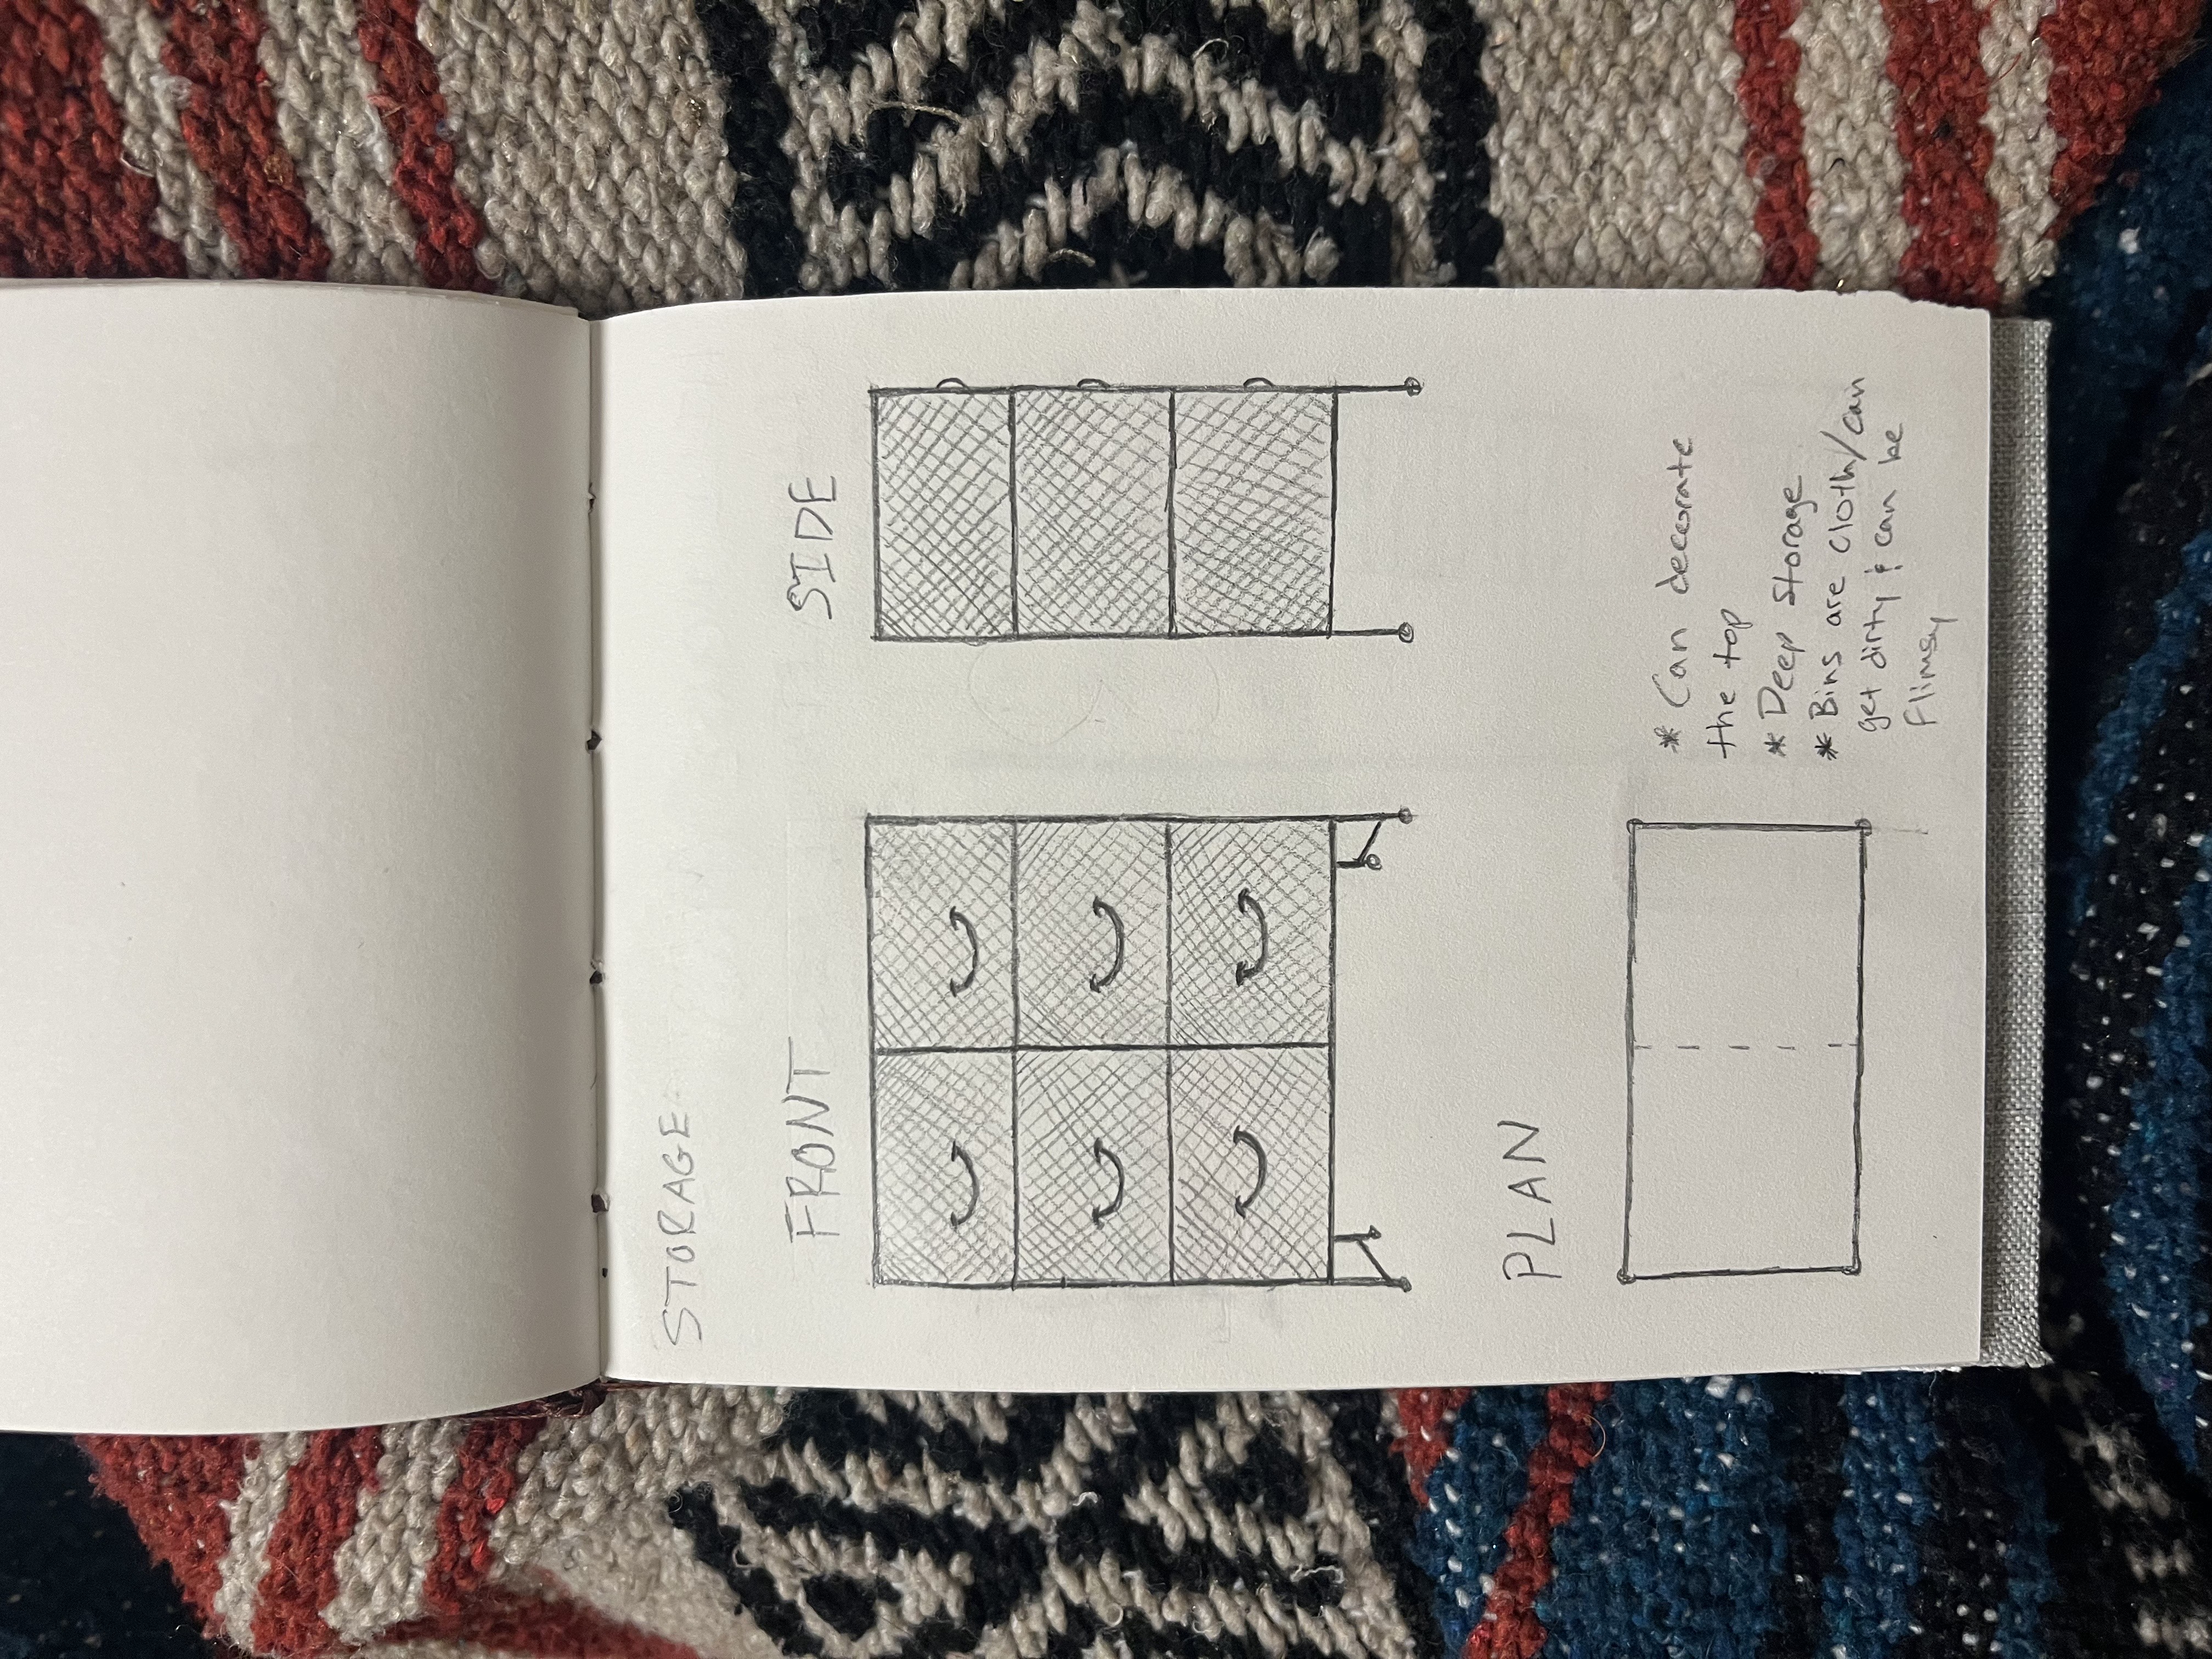 STORAGE
FRONT
SIDE
PLAN
* Can decorate
the top
* Deep storage
* Bins are cloth/can
get dirty & can be
flimsy